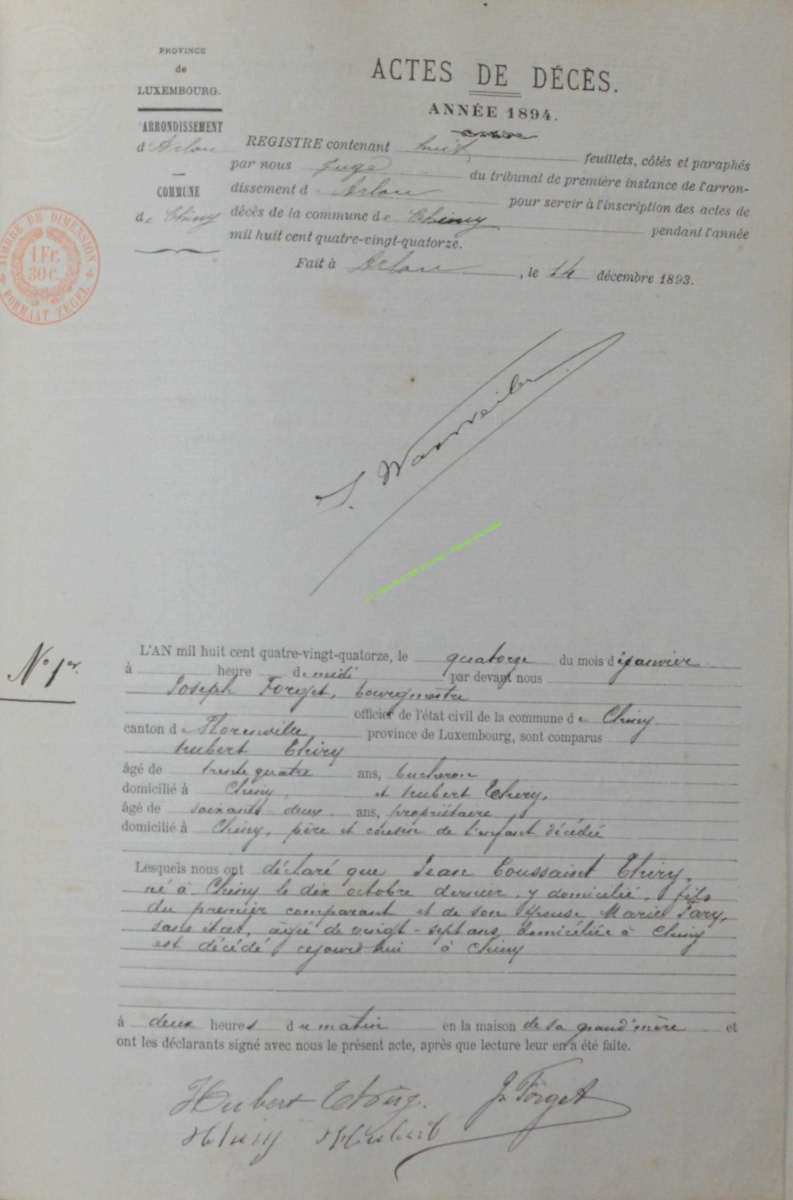 PROVINCE
de
LUXEMBOURG.
ARRONDISSEMENT
d'Arlon
COMMUNE
de Chiny
TIMBRE DE DIMENSION
1 Fr.
30 c.
FORMAAT ZEGEL
ACTES DE DÉCÈS.
ANNÉE 1894.
REGISTRE contenant huit feuillets, côtés et paraphés
par nous Juge du tribunal de première instance de l'arron-
dissement d Arlon pour servir à l'inscription des actes de
décès de la commune de Chiny pendant l'année
mil huit cent quatre-vingt-quatorze.
Fait à Arlon, le 14 décembre 1893.
N° 1er.
L'AN mil huit cent quatre-vingt-quatorze, le quatorze du mois de janvier
à heure de midi par devant nous
Joseph Forget, bourgmestre
officier de l'état civil de la commune de Chiny
canton de Florenville, province de Luxembourg, sont comparus
Hubert Thiry
âgé de trente quatre ans, bucheron
domicilié à Chiny, et Hubert Thiry,
âgé de soixante deux ans, propriétaire
domicilié à Chiny, père et cousin de l'enfant décédé
Lesquels nous ont déclaré que Jean Toussaint Thiry,
né à Chiny le dix octobre dernier, y domicilié, fils
du premier comparant et de son épouse Marie
sans état, âgée de vingt-sept ans, domiciliée à Chiny
est décédé cejourd'hui à Chiny
à deux heures du matin en la maison de sa grand'mère et
ont les déclarants signé avec nous le présent acte, après que lecture leur en a été faite.
Hubert Thiry. J. Forget
Thiry Hubert